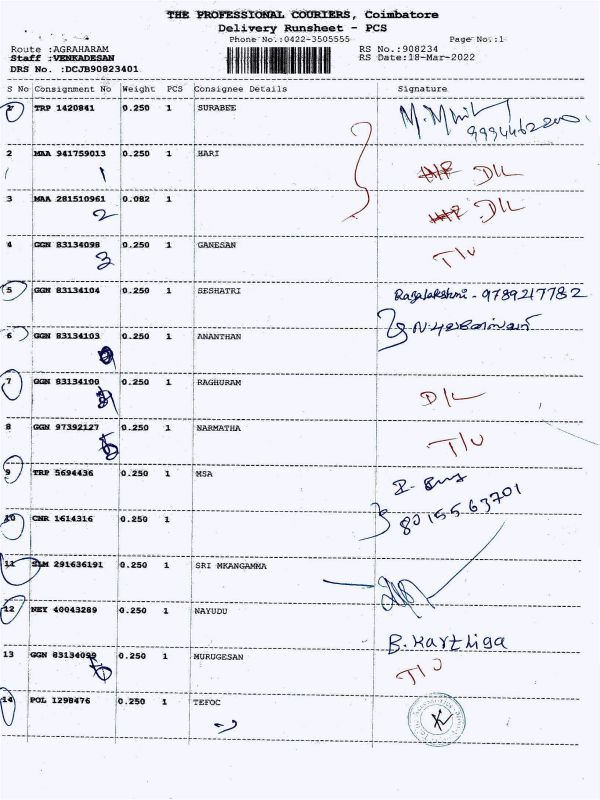 THE PROFESSIONAL COURIERS, Coimbatore
Delivery Runsheet - PCS
Phone No.:0422-3505555 Page No.:1
Route :AGRAHARAM RS No.:908234
Staff :VENKADESAN RS Date:18-Mar-2022
DRS No. :DCJB90823401
S No Consignment No Weight PCS Consignee Details Signature
1 TRP 1420841 0.250 1 SURABEE
2 MAA 941759013 0.250 1 HARI D/L
1
3 MAA 281510961 0.082 1 D/L
2
4 GGN 83134098 0.250 1 GANESAN T/U
3
5 GGN 83134104 0.250 1 SESHATRI Ragalakshmi - 9789217782
6 GGN 83134103 0.250 1 ANANTHAN
7 GGN 83134100 0.250 1 RAGHURAM D/L
8 GGN 97392127 0.250 1 NARMATHA T/U
9 TRP 5694436 0.250 1 MSA
8015563701
10 CNR 1614316 0.250 1
11 SLM 291636191 0.250 1 SRI MKANGAMMA
12 NEY 40043289 0.250 1 NAYUDU B. Karthiga
13 GGN 83134099 0.250 1 MURUGESAN T/U
14 POL 1298476 0.250 1 TEFOC